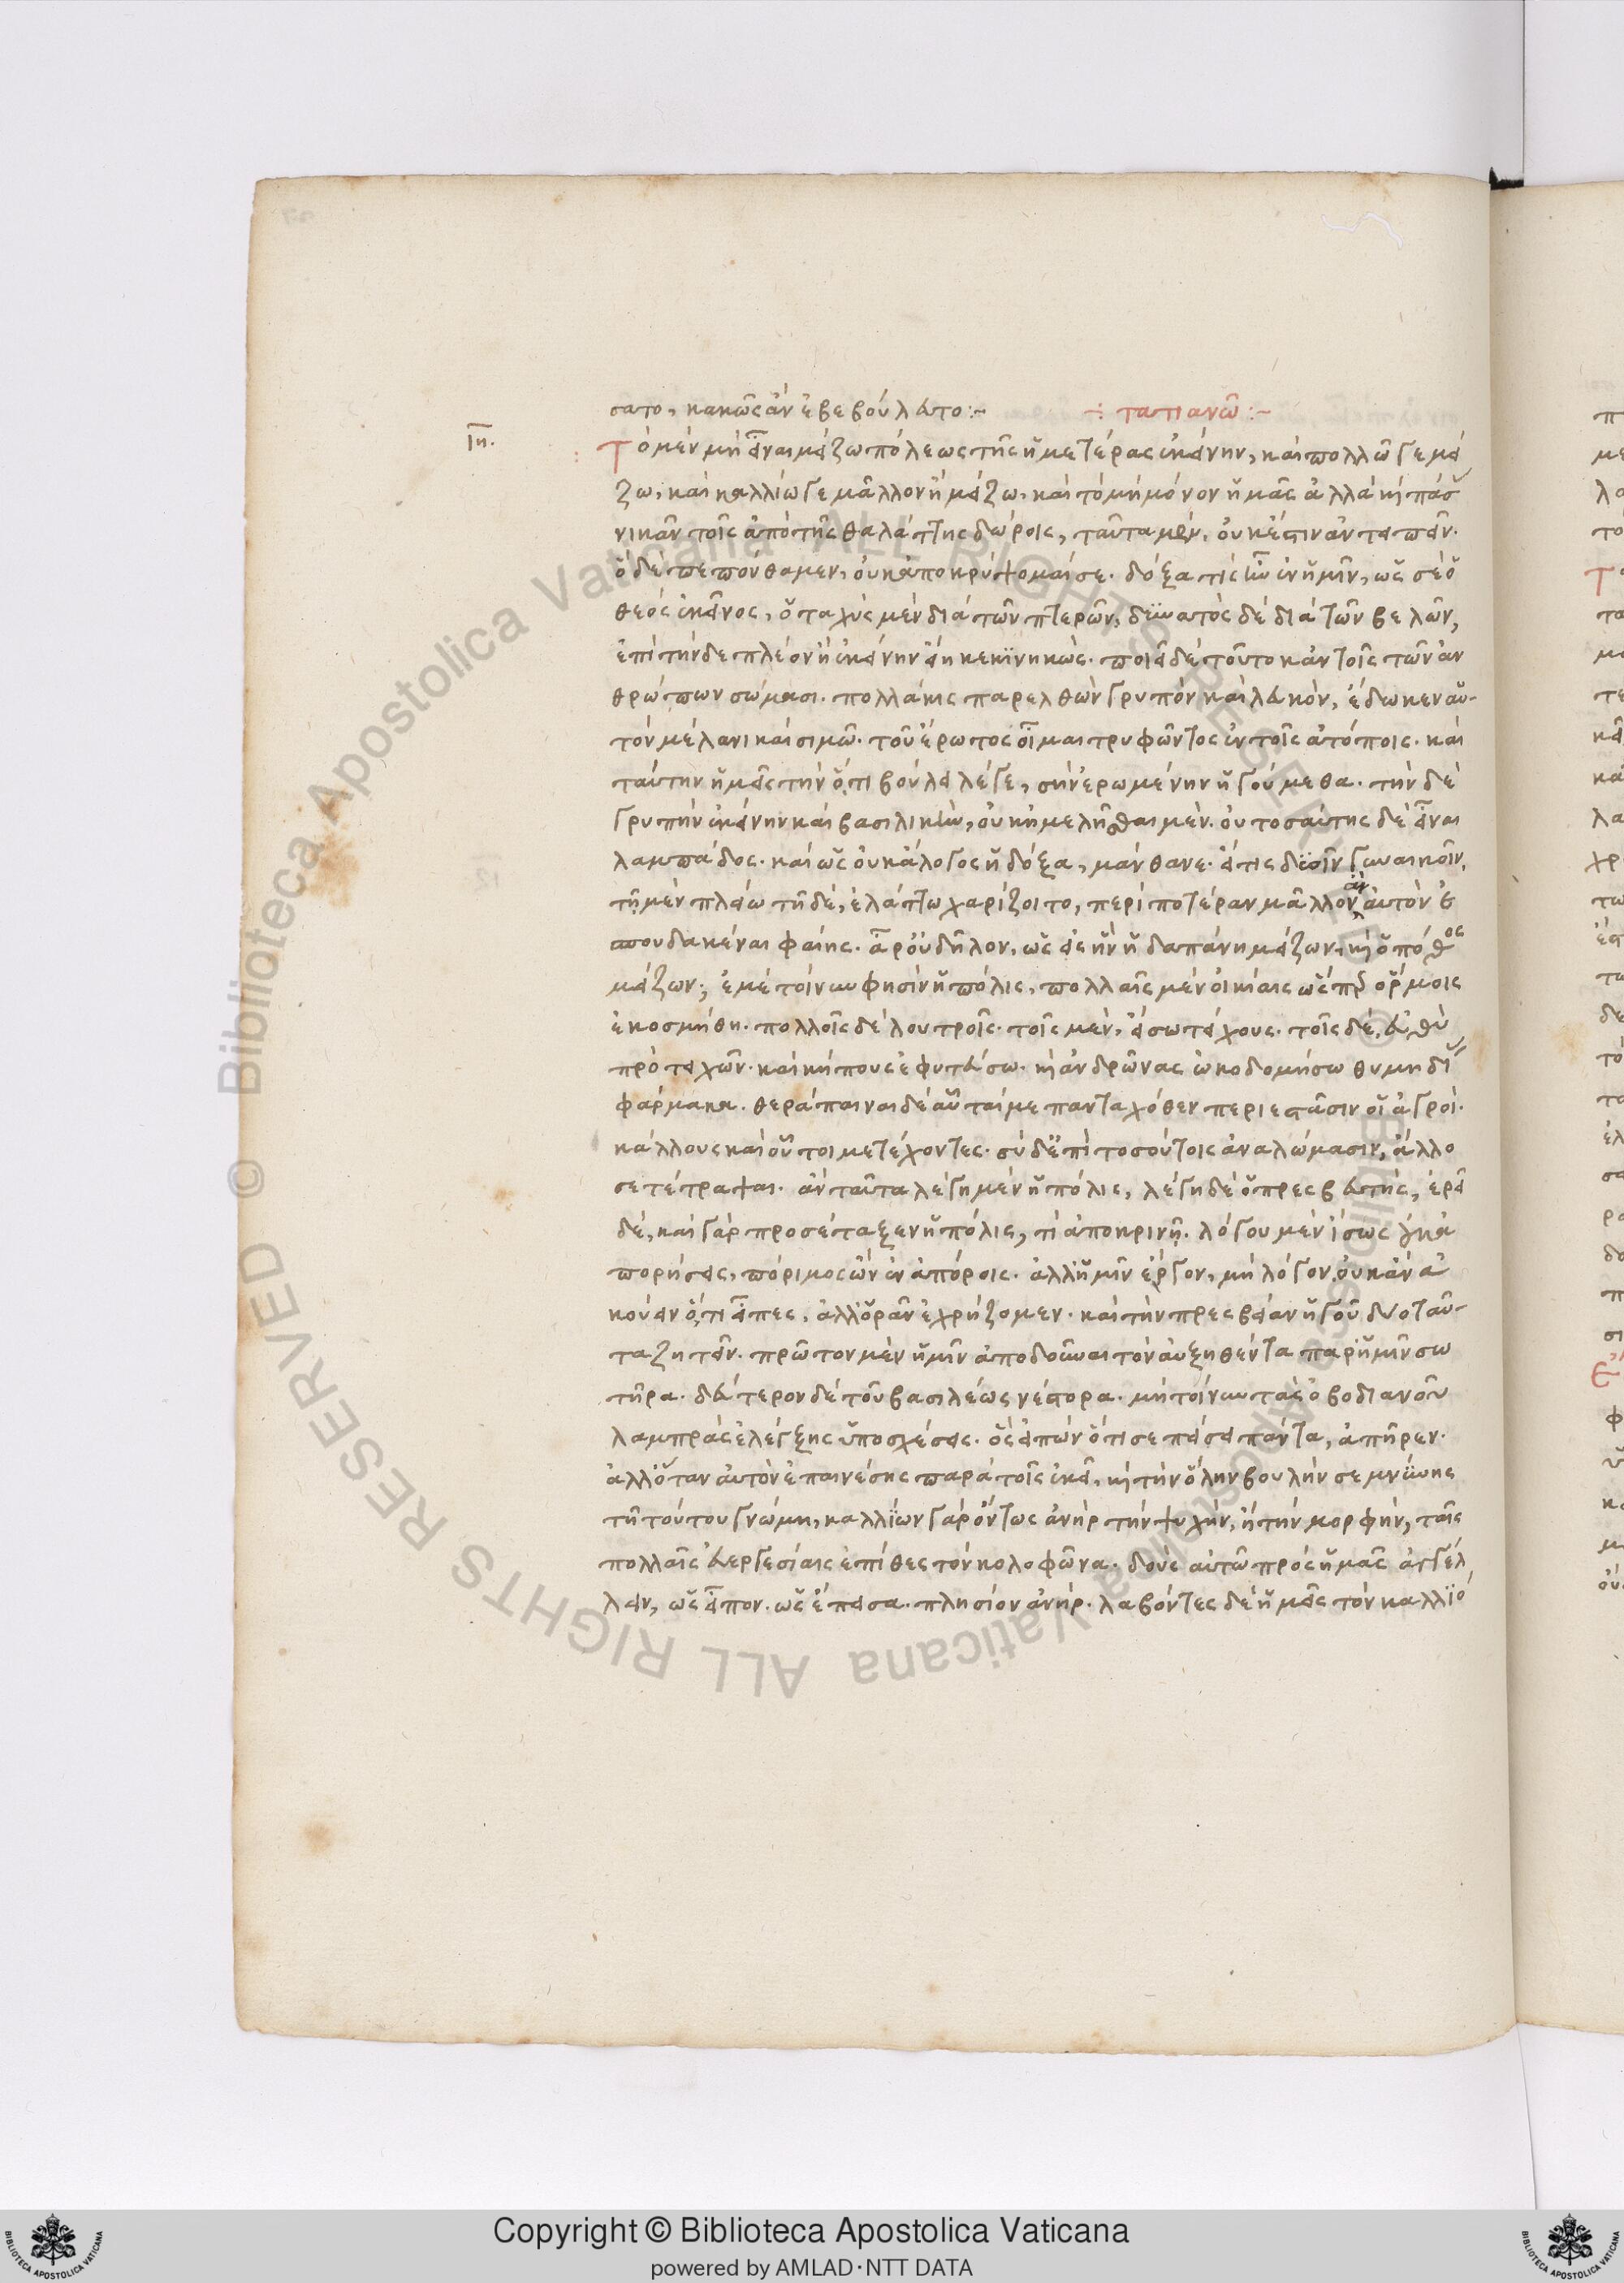 σατο, κακῶς ἂν ἐβεβούλευτο:~ ÷ τατιανῶ:~
ιη.
Τὸ μὲν μὴ εἶναι μείζω πόλεως τῆς ἡμετέρας ἐκείνην, καὶ πολλῶ γε μεί
ζω, καὶ καλλίω γε μᾶλλον ἢ μείζω. καὶ τὸ μὴ μόνον ἡμᾶς ἀλλὰ καὶ πάσ
νικᾶν τοῖς ἀπὸ τῆς θαλάττης δώροις, ταῦτα μὲν, οὐκ ἔστιν ἀντειπεῖν.
ὃ δὲ πεπόνθαμεν, οὐκ ἀποκρύψομαί σε. δόξα τίς ἦν ἐν ἡμῖν, ὡς σὲ ὁ
θεὸς ἐκεῖνος, ὁ ταχὺς μὲν διὰ τῶν πτερῶν, δυνατὸς δὲ διὰ τῶν βελῶν,
ἐπὶ τήνδε πλέον ἢ ἐκείνην εἴη κεκινηκώς. ποιεῖ δὲ τοῦτο κἀν τοῖς τῶν ἀν
θρώπων σώμασι. πολλάκις παρελθὼν γρυπὸν καὶ λευκὸν, ἔδωκεν αὑ-
τὸν μέλανι καὶ σιμῶ. τοῦ ἔρωτος οἶμαι τρυφῶντος ἐν τοῖς ἀτόποις. καὶ
ταύτην ἡμεῖς τὴν ὅ,τι βούλει λέγε, σὴν ἐρωμένην ἡγούμεθα. τὴν δὲ
γρυπὴν ἐκείνην καὶ βασιλικὴν, οὐκ ἠμελῆσθαι μὲν. οὐ τοσαύτης δὲ εἶναι
λαμπάδος. καὶ ὡς οὐκ ἄλογος ἡ δόξα, μάνθανε. εἴ τις δυοῖν γυναικοῖν,
τῆ μὲν πλείω τῆ δὲ, ἐλάττω χαρίζοιτο, περὶ ποτέραν μᾶλλον ἂν αὐτὸν ἐ
σπουδακέναι φαίης. ἆρ' οὐ δῆλον, ὡς εἰς ἣν ἡ δαπάνη μείζων, καὶ ὁ πόθος
μείζων; ἐμὲ τοίνυν φησὶν ἡ πόλις, πολλαῖς μὲν οἰκίαις ὥσπερ ὅρμοις
ἐκόσμηθη. πολλοῖς δὲ λουτροῖς. τοῖς μὲν, εἴσω τείχους. τοῖς δὲ, εὐθὺ
πρὸ τειχῶν. καὶ κήπους ἐφυτεύσω. καὶ ἀνδρῶνας ὠκοδομήσω θυμηδί
φάρμακα. θεράπαιναι δὲ αὗταί με πανταχόθεν περιεστᾶσιν οἱ ἀγροί.
κάλλους καὶ οὗτοι μετέχοντες. σὺ δ' ἐπὶ τοσούτοις ἀναλώμασιν, ἄλλο
σε τέτραψαι. ἂν ταῦτα λέγη μὲν ἡ πόλις, λέγη δὲ ὁ πρεσβευτὴς, ἐρεῖ
δὲ, καὶ γὰρ προσέταξεν ἡ πόλις, τί ἀποκρινῆ. λόγου μὲν ἴσως οὐκ ἀ
πορήσεις, πόριμος ὢν ἐν ἀπόροις. ἀλλ' ἡμῖν ἔργον, μὴ λόγον. οὐκ ἂν ἀ
κούειν ὅ,τι εἶπες, ἀλλ' ὁρᾶν ἐχρήζομεν. καὶ τὴν πρεσβείαν ἡγοῦ δύο ταῦ-
τα ζητεῖν. πρῶτον μὲν ἡμῖν ἀποδοῦναι τὸν αὐξηθέντα παρ' ἡμῖν σω
τῆρα. δεύτερον δὲ τοῦ βασιλέως νέστορα. μὴ τοίνυν τὰς ὀβοδιανοῦ
λαμπρὰς ἐλέγξης ὑποσχέσεις. ὃς εἰπὼν ὅτι σε πείσει πάντα, ἀπῆρεν.
ἀλλ' ὅταν αὐτὸν ἐπαινέσης παρὰ τοῖς ἐκεῖ, καὶ τὴν ὅλην βουλὴν σεμνύνης
τῆ τούτου γνώμη, καλλίων γὰρ ὄντως ἀνὴρ τὴν ψυχὴν, ἢ τὴν μορφὴν, ταῖς
πολλαῖς εὐεργεσίαις ἐπίθες τὸν κολοφῶνα. δοὺς αὐτῶ πρὸς ἡμᾶς ἀγγέλ
λειν, ὡς εἶπον. ὡς ἔπεισα. πλησίον ἀνήρ. λαβόντες δὲ ἡμεῖς τὸν καλλιό